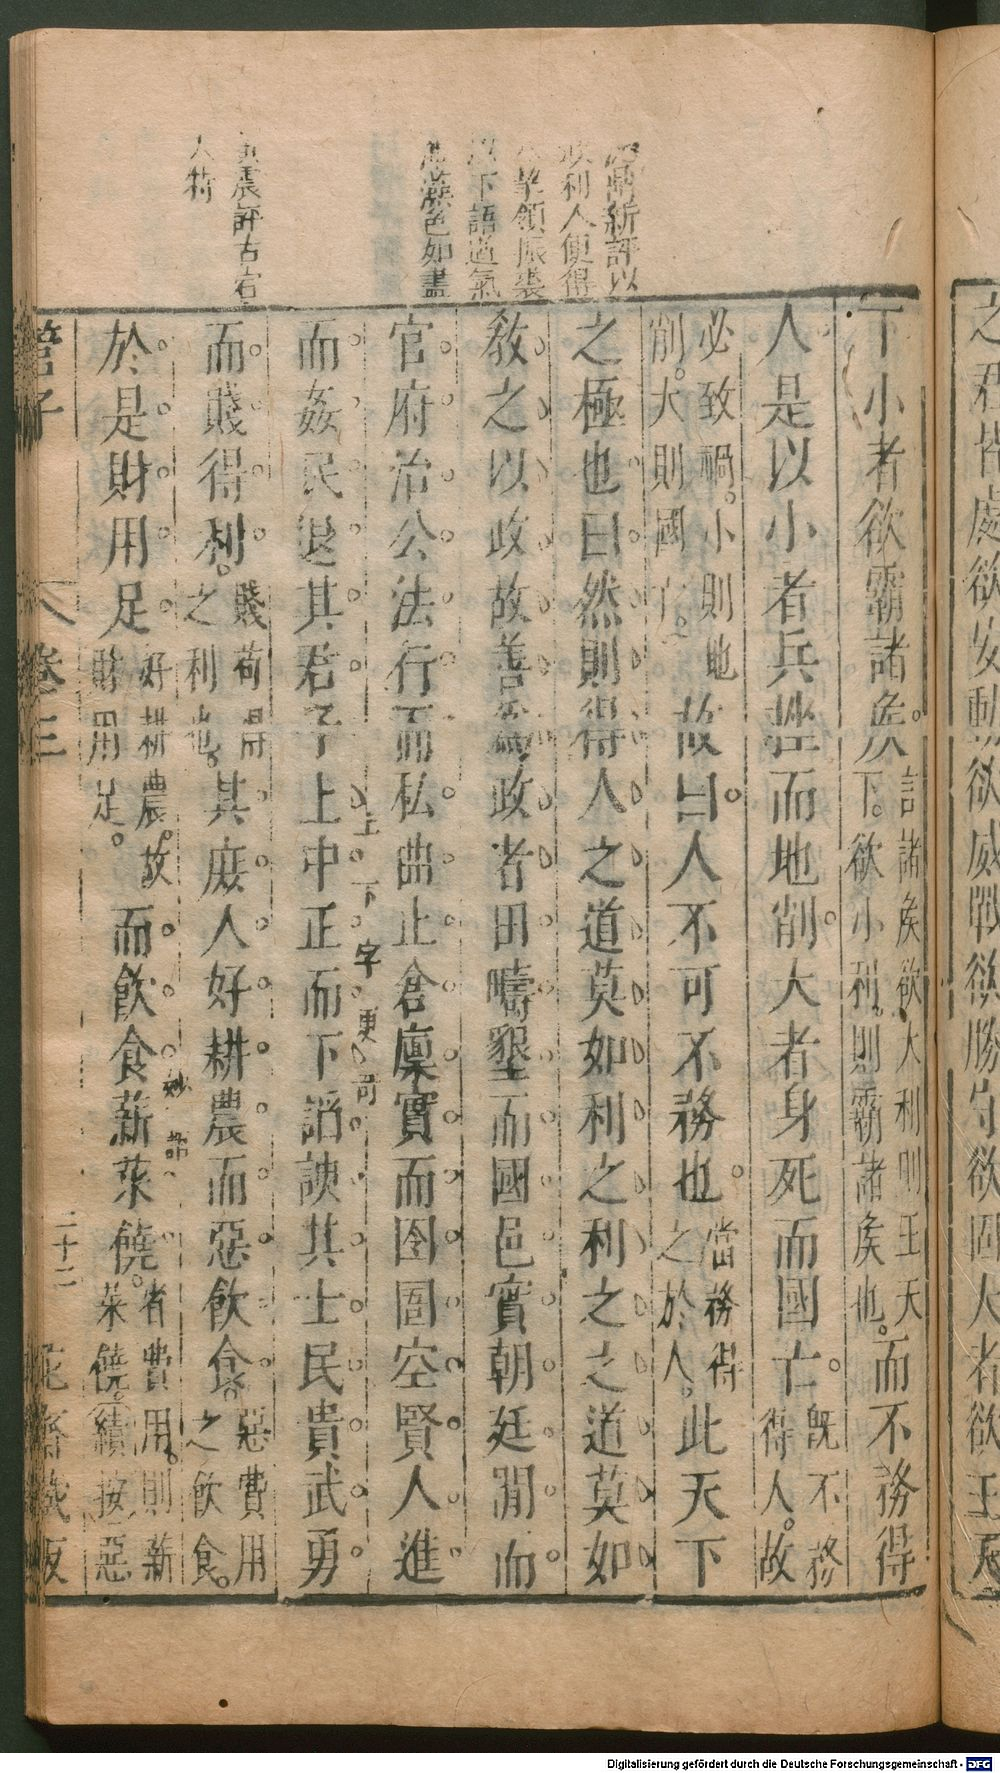 之君皆處欲安動欲威戰欲勝守欲固大者欲王天
下小者欲霸諸矦。言諸矦欲大利則王天下。欲小利。則霸諸矦也。而不務得
人是以小者兵挫而地削。大者身死而國亡。旣不務得人。故
必致禍。小則地削。大則國亡。故曰。人不可不務也。當務得之於人。此天下
之極也曰然則得人之道莫如利之利之之道莫如
敎之以政故善爲政者田疇墾而國邑實朝廷閒而
官府治公法行而私曲止倉廩實而囹圄空賢人進
而姦民退其君子上中正而下諂諛其士民貴武勇
上下字更
而賤得利。賤苟得之利也。其庶人好耕農而惡飮食。惡費用之飮食。
於是財用足好耕農。故財用足。而飮食薪菜饒。者費用。則薪菜饒。續按惡
妙
管子
卷三
二十二
新評以
利人便得
領振裘
下語遒氣
色如畫
農評古
Digitalisierung gefördert durch die Deutsche Forschungsgemeinschaft - DFG